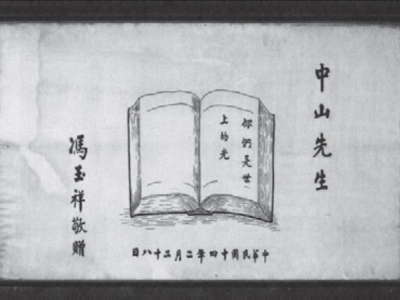 中山先生
你們是世
上的光
馮玉祥敬贈
中華民國十四年二月二十八日